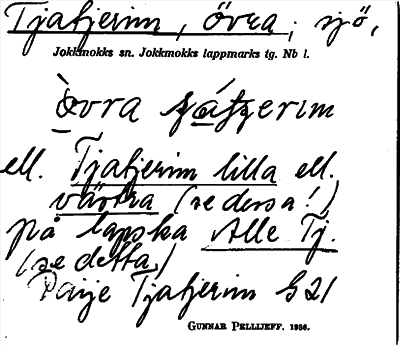 Tjatjerim, övra, sjö,
Jokkmokks sn. Jokkmokks lappmarks tg. Nb l.
òvra
ell. Tjatjerim lilla ell.
västra (se dessa!)
på lapska Alle Tj.
(se detta)
Paije Tjatjerim G 21
GUNNAR PELLIJEFF. 1956.